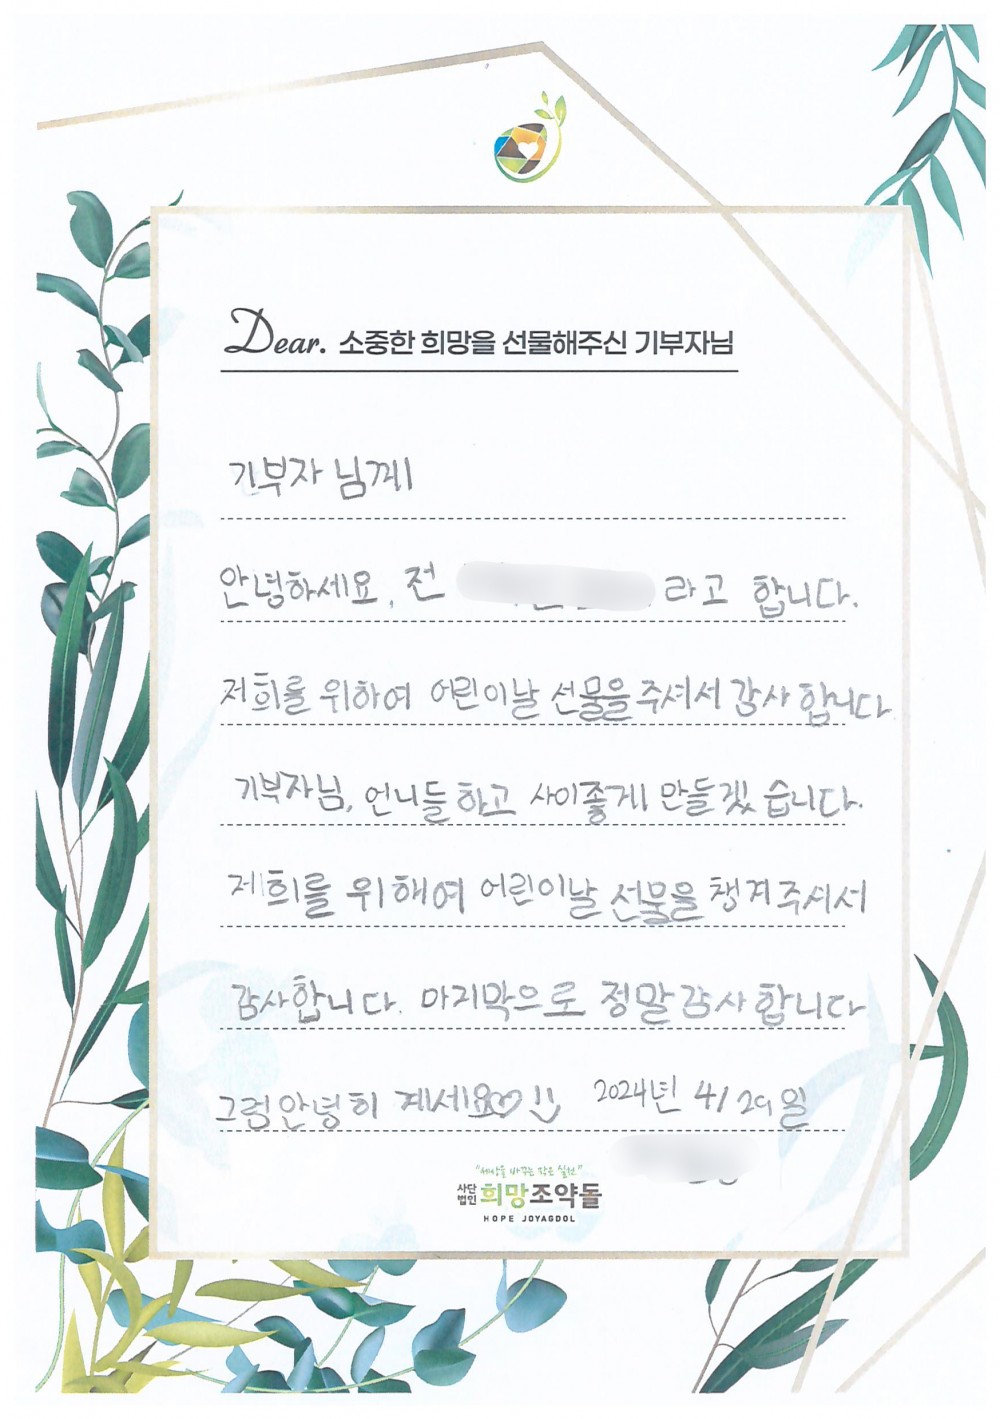 Dear. 소중한 희망을 선물해주신 기부자님
기부자 님께
안녕하세요, 전 라고 합니다.
저희를 위하여 어린이날 선물을 주셔서 감사 합니다
기부자님, 언니들하고 사이좋게 만들겠 습니다.
저희를 위해여 어린이날 선물을 챙겨주셔서
감사합니다. 마지막으로 정말 감사 합니다
그럼 안녕히 계세요♡ 2024년 4/29일
"세상을 바꾸는 작은 실천"
사단법인 희망조약돌
HOPE JOYAGDOL